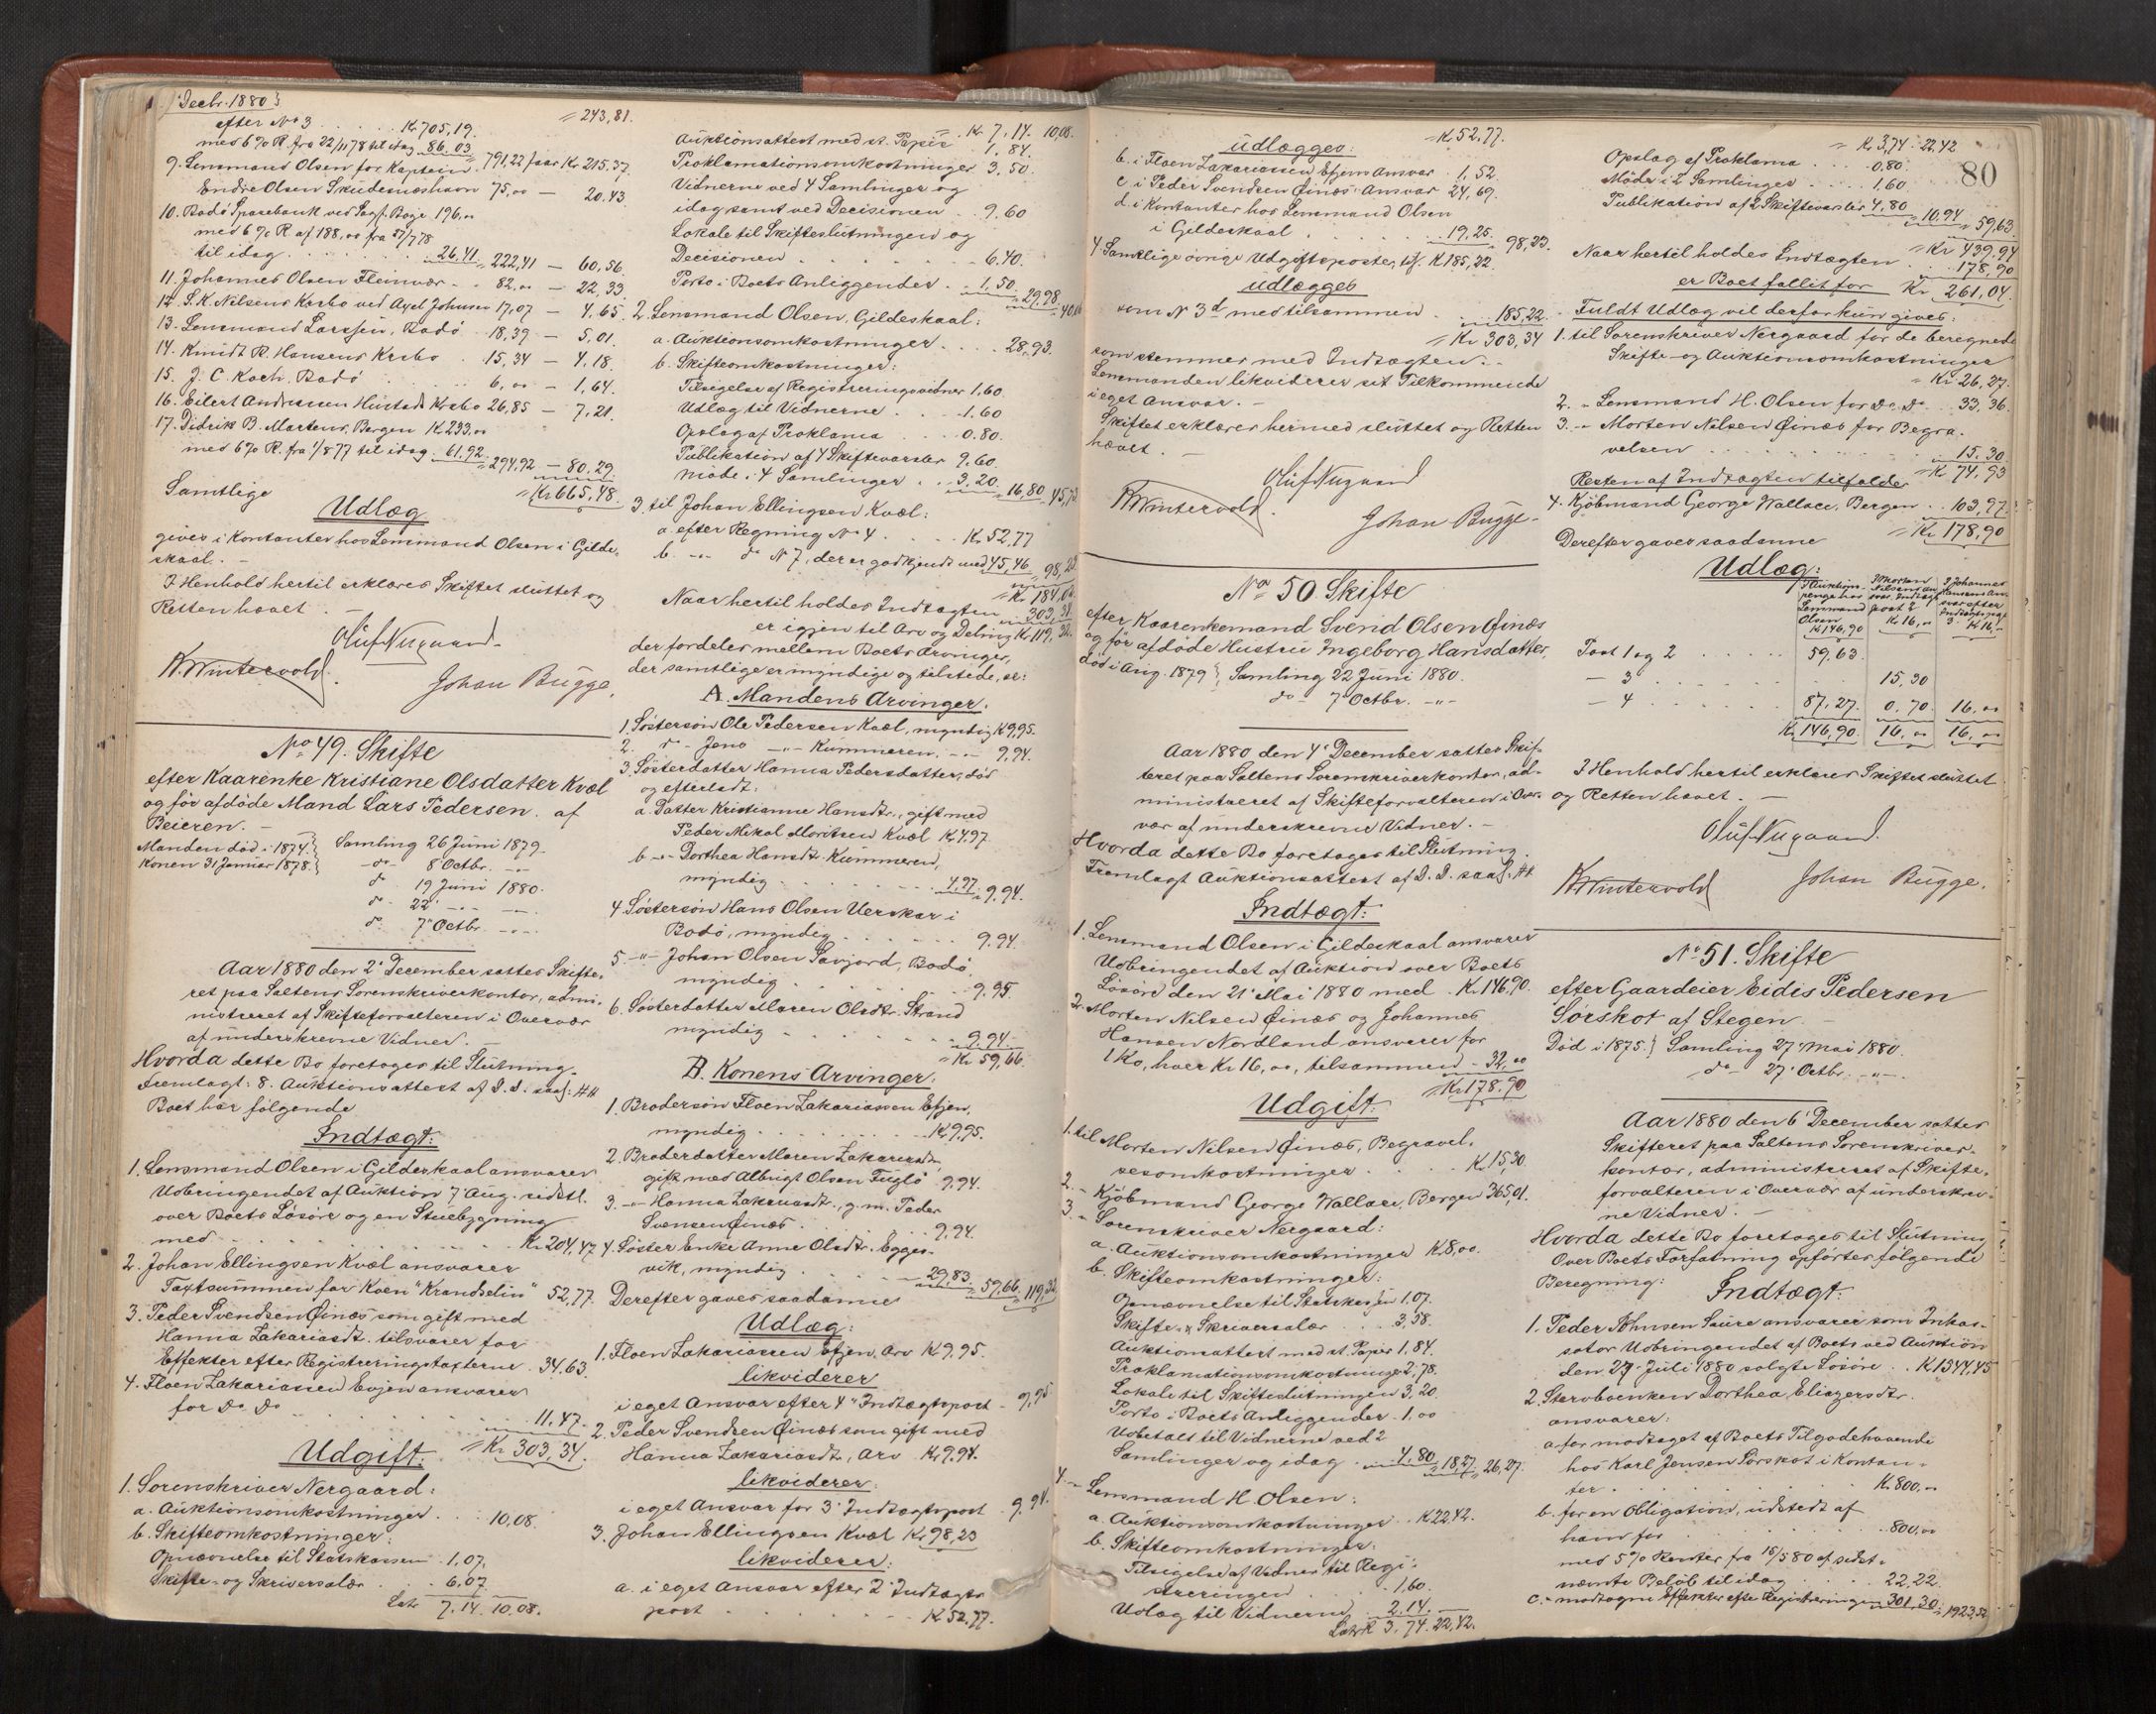 Decbr. 1880}
= 243,81.
efter No 3 . . . . Kr 705,19.
med 6 % R. fra 22/11 78 til idag 86,03
= 791,22 faar Kr 215,37
9. Lensmand Olsen for Kaptein
Endre Olsen Skudesnæshavn 75,00 — 20,43
10. Bodö Sparebank ved Sagf. Boje 196,00
med 6 % R af 188,00 fra 27/7 78
til idag . . . . 26,41 = 222,41 — 60,56
11. Johannes Olsen Fleinvær . . 82,00 — 22,33
12. S. K. Nilsens Karbo ved Axel Johnsen 17,07 — 4,65
13. Lensmand Larssen, Bodö . 18,39 — 5,01.
14. Knudt R. Hansens Krsbo . 15,34 — 4,18.
15. J. C. Koch, Bodö . . . 6,00 — 1,64.
16. Eilert Andreassen Hustads Krsbo 26,85 — 7,21.
17. Didrik B. Martens, Bergen K 233,00
med 6 % R. fra 1/8 77 til idag . 61,92 = 294,92 — 80,29.
= Kr 665,48.
Samtlige
Udlæg
gives i Kontanter hos Lensmand Olsen i Gilde-
skaal. —
I Henhold hertil erklæres Skiftet sluttet og
Retten hævet. —
Oluf Nergaard.
K. Wintervold.
Johan Bugge.
No 49. Skifte
efter Kaarenke Kristiane Olsdatter Kvæl
og før afdöde Mand Lars Pedersen. af
Beieren. —
Manden död i 1874} Samling 26 Juni 1879.
Konen 31 Januar 1878.} — do — 8 Octbr. —"—
do 19 Juni 1880.
do — 22' —"— —"—
do — 7' Octbr. —"—
Aar 1880 den 2' December sattes Skifte-
ret paa Saltens Sorenskriverkontor, admi-
nistreret af Skifteforvalteren i Overvær
af underskrevne Vidner. —
Hvorda dette Bo foretages til Slutning.
Fremlagt: 8. Auktionsattest af D. D. saal:
Boet har følgende
Indtægt:
1. Lensmand Olsen i Gildeskaal ansvarer
Udbringendet af Auktion 7' Aug. sidstl.
over Boets Lösöre og en Stuebygning
med . . . . . Kr 204,47
2. Johan Ellingsen Kvæl ansvarer
Taxtsummen for Koen "Krandselin" 52,77.
3. Peder Svendsen Öinæs som gift med
Hanna Zakariasdt. tilsvarer for
Effekter efter Registreringstaxterne . 34,63
4. Floen Zakariassen Evjen ansvarer
for Do Do . . . . 11,47.
= Kr 303,34.
Udgift:
1. Sorenskriver Nergaard:
a. Auktionsomkostninger . . 10,08.
b. Skifteomkostninger:
Opnævnelse til Statskassen . 1,07.
Skifte- og Skriversalær . . 6,07
Latr 7,14. 10,08.
= Kr 7,14. 10,08.
Auktionsattest med st. Papir . 1,84.
Proklamationsomkostninger 3,50.
Vidnerne ved 4 Samlinger og
idag samt ved Decisionen . . 9,60
Lokale til Skifteslutningen og
Decisionen . . . . 6,40.
Porto i Boets Anliggender . 1,50. = 29,98. = 40,06
2. Lensmand Olsen, Gildeskaal:
a. Auktionsomkostninger . . . 28,93.
b. Skifteomkostninger:
Tilsigelse af Registreringsvidner 1,60.
Udlæg til Vidnerne . . . 1,60
Opslag af Proklama . . . 0,80.
Publikation af 4 Skiftevarsler 9,60.
Møde i 4 Samlinger . . 3,20. = 16,80 = 45,73
3. til Johan Ellingsen Kvæl:
a. efter Regning No 4 . . . Kr 52,77
b. —"— do No 7, der er godkjendt med 45,46 = 98,23
= Kr 184,02
Naar hertil holdes Indtægten . 303,34.
er igjen til Arv og Deling Kr 119,32.
der fordeles mellem Boets Arvinger,
der samtlige er myndige og tilstede, se:
A. Mandens Arvinger.
1. Söstersön Ole Pedersen Kvæl, myndig K 9,95.
2. do — Jens —"— Kummeren, —"— 9,94.
3. Sösterdatter Hanna Pedersdatter, död
og efterladt:
a. Datter Kristianne Hansdt., gift med
Peder Mikal Moritsen Kvæl K 4,97
b. —"— Dorthea Hansdt. Kummeren,
myndig . . . . 4,97 = 9,94.
4 Söstersön Hans Olsen Uerskar i
Bodö, myndig . . . . 9,94.
5 —"— Johan Olsen Savjord, Bodö,
myndig . . . . 9,95.
6. Sösterdatter Maren Olsdtr. Strand
myndig . . . . 9,94.
= Kr 59,66.
B. Konens Arvinger.
1. Brodersön Floen Zakariassen Efjen,
myndig . . . . K 9,95.
2. Broderdatter Maren Zakariasdtr.
gift med Albrigt Olsen Fuglö 9,94.
3. —"— Hanna Zakariasdt., g. m. Peder
Svensen Öinæs . . . . 9,94.
4. Söster Enke Anne Olsdtr. Egges-
vik, myndig . . . . 29,83. = 59,66 = 119,32
Derefter gaves saadanne
Udlæg:
1. Floen Zakariassen Efjen, Arv K 9,95.
likviderer
i eget Ansvar efter 4' Indtægtspost . 9,95
2. Peder Svendsen Öinæs som gift med
Hanna Zakariasdt, Arv K 9,94.
likviderer:
i eget Ansvar for 3' Indtægtspost . 9,94.
3. Johan Ellingsen Kvæl Kr 98,23
likviderer:
a. i eget Ansvar efter 2' Indtægts
post . . . . K 52,77.
= K 52,77.
udlægges:
b. i Floen Zakariassen Efjens Ansvar . 1,52.
c. i Peder Svendsen Öinæs' Ansvar 24,69.
d. i Kontanter hos Lensmand Olsen
i Gildeskaal . . . . 19,25. = 98,23.
4. Samtlige övrige Udgiftsposter, tils. K 185,22.
udlægges
som No 3d med tilsammen . . 185,22.
= Kr 303,34
som stemmer med Indtægten. —
Lensmanden likviderer sit Tilkommende
i eget Ansvar. —
Skiftet erklæres hermed sluttet og Retten
hævet. —
Oluf Nergaard
K. Wintervold.
Johan Bugge.
No 50. Skifte
efter Kaarenkemand Svend Olsen Öinæs
og før afdöde Hustru Ingeborg Hansdatter,
död i Aug. 1879} Samling 22 Juni 1880.
do — 7' Octbr. —"—
Aar 1880 den 4' December sattes Skif-
teret paa Saltens Sorenskriverkontor, ad-
ministreret af Skifteforvalteren i Over-
vær af underskrevne Vidner. —
Hvorda dette Bo foretages til Slutning.
Fremlagt Auktionsattest af D. D. saal:
Indtægt:
1. Lensmand Olsen i Gildeskaal ansvarer
Udbringendet af Auktion over Boets
Lösöre den 21' Mai 1880 med . Kr 146,90.
2. Morten Nilsen Öinæs og Johannes
Hansen Nordland ansvarer for
1 Ko, hver Kr 16,00, tilsammen — 32,00
= Kr 178,90
Udgift:
1. til Morten Nilsen Öinæs, Begravel-
sesomkostninger . . . . K 15,30.
2. — Kjöbmand George Wallace, Bergen 365,01.
3. — Sorenskriver Nergaard:
a. Auktionsomkostninger K 8,00.
b. Skifteomkostninger:
Opnævnelse til Statskassen 1,07.
Skifte- & Skriversalær . . . 3,58.
Auktionsattest med st. Papir 1,84.
Proklamationsomkostninger 2,78.
Lokale til Skifteslutningen 3,20
Porto i Boets Anliggender . 1,00
Udbetalt til Vidnerne ved 2
Samlinger og idag . . 4,80 = 18,27 = 26,27.
4. — Lensmand H. Olsen:
a. Auktionsomkostninger . . K 22,42.
b. Skifteomkostninger:
Tilsigelse af Vidner til Regi-
streringen . . . . 1,60.
Udlæg til Vidnerne . 2,14.
Latr K 3,74. 22,42.
80
= Kr 3,74 22,42
Opslag af Proklama . . . 0,80.
Möde i 2 Samlinger . . . 1,60
Publikation af 2 Skiftevarsler 4,80 = 10,94 = 59,63.
= Kr 439,94
Naar hertil holdes Indtægten . . 178,90
er Boet fallit for Kr 261,04.
Fuldt Udlæg vil derfor kun gives:
1. til Sorenskriver Nergaard for de beregnede
Skifte- og Auktionsomkostninger
= Kr 26,27.
2. — Lensmand H. Olsen for Do Do . . 33,36.
3. — Morten Nilsen Öinæs for Begra-
velsen . . . . 15,30
= K 74,93
Resten af Indtægten tilfalder
4. Kjöbmand George Wallace, Bergen . . 103,97.
= Kr 178,90
Derefter gaves saadanne
Udlæg:
I Auktions-
penge hos
Lensmand
Olsen
K 146,90
I Morten
Nilsens An-
svar. Indtægts
post 2
K 16,00
I Johannes
Hansens An-
svar efter
Indtægtspost
3. K 16,00
Post 1 og 2 . . . . 59,63.
— 3 . . . . 15,30
— 4 . . . . 87,27. 0,70. 16,00
K 146,90. 16,00 16,00
I Henhold hertil erklæres Skiftet sluttet
og Retten hævet. —
Oluf Nergaard.
K. Wintervold
Johan Bugge.
No 51. Skifte
efter Gaardeier Eidis Pedersen
Sörskot af Stegen. —
Död i 1875.} Samling 27 Mai 1880.
— do — 27' Octbr. —"—
Aar 1880 den 6' December sattes
Skifteret paa Saltens Sorenskriver-
kontor, administreret af Skifte-
forvalteren i Overvær af underskrev-
ne Vidner. —
Hvorda dette Bo foretages til Slutning
Over Boets Forfatning opförtes følgende
Beregning:
Indtægt:
1. Peder Johnsen Saure ansvarer som Inkas-
sator Udbringendet af Boets ved Auktion
den 27' Juli 1880 solgte Lösöre . . K 1344,45
2. Stervboenken Dorthea Eliezersdtr.
ansvarer:
a. for modtaget af Boets Tilgodehavende
hos Karl Jensen Sörskot i Kontan-
ter . . . . K 800,00
b. for en Obligation, udstedt af
ham for . . . . 800,00
med 5 % Renter fra 15/5 80 af sidst-
nævnte Belöb til idag . . 22,22.
c. — modtagne Effekter efter Registreringen 301,30 = 1923,52